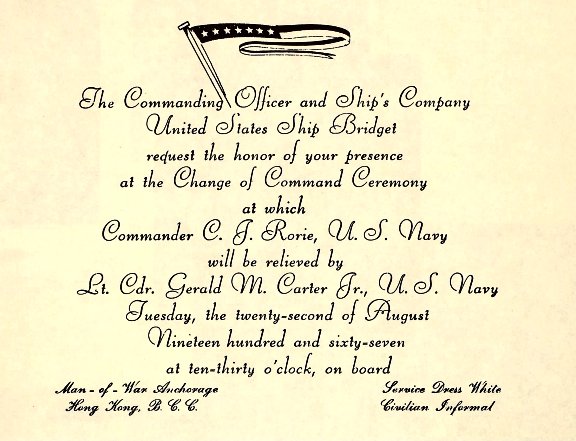 The Commanding Officer and Ship's Company
United States Ship Bridget
request the honor of your presence
at the Change of Command Ceremony
at which
Commander C. J. Rorie, U. S. Navy
will be relieved by
Lt. Cdr. Gerald M. Carter Jr., U. S. Navy
Tuesday, the twenty-second of August
Nineteen hundred and sixty-seven
at ten-thirty o'clock, on board
Man - of - War Anchorage
Hong Kong, B. C. C.
Service Dress White
Civilian Informal